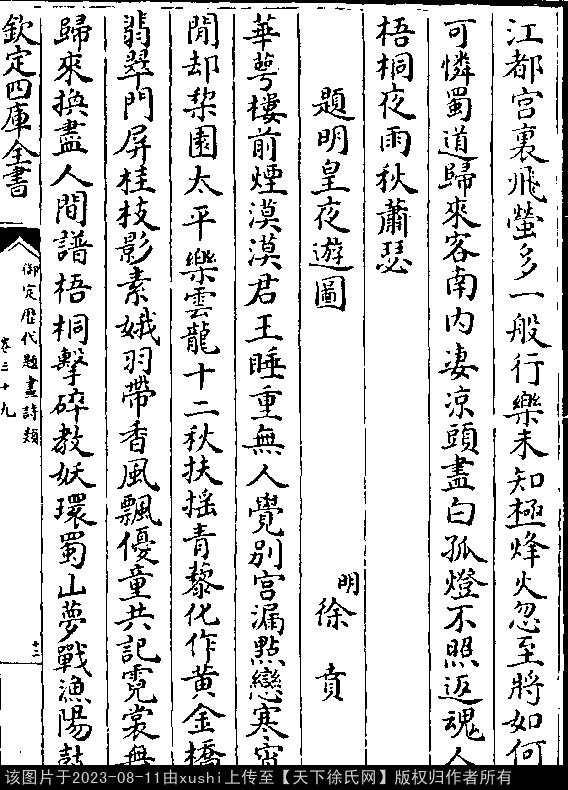 江都宫裏飛螢多一般行樂未知極烽火忽至將如何
可憐蜀道歸來客南内凄涼頭盡白孤燈不照返魂人
梧桐夜雨秋蕭瑟
題明皇夜遊圖
明徐賁
華萼樓前煙漠漠君王睡重無人覺别宫漏點戀寒宵
閒却棃園太平樂雲龍十二秋扶摇青藜化作黄金橋
翡翠門屏桂枝影素娥羽帶香風飄優童共記霓裳無
歸來换盡人間譜梧桐擊碎教妖環蜀山夢戰漁陽鼓
欽定四庫全書
御定歴代題畫詩類
卷三十九
十二
该图片于2023-08-11由xushi上传至【天下徐氏网】版权归作者所有